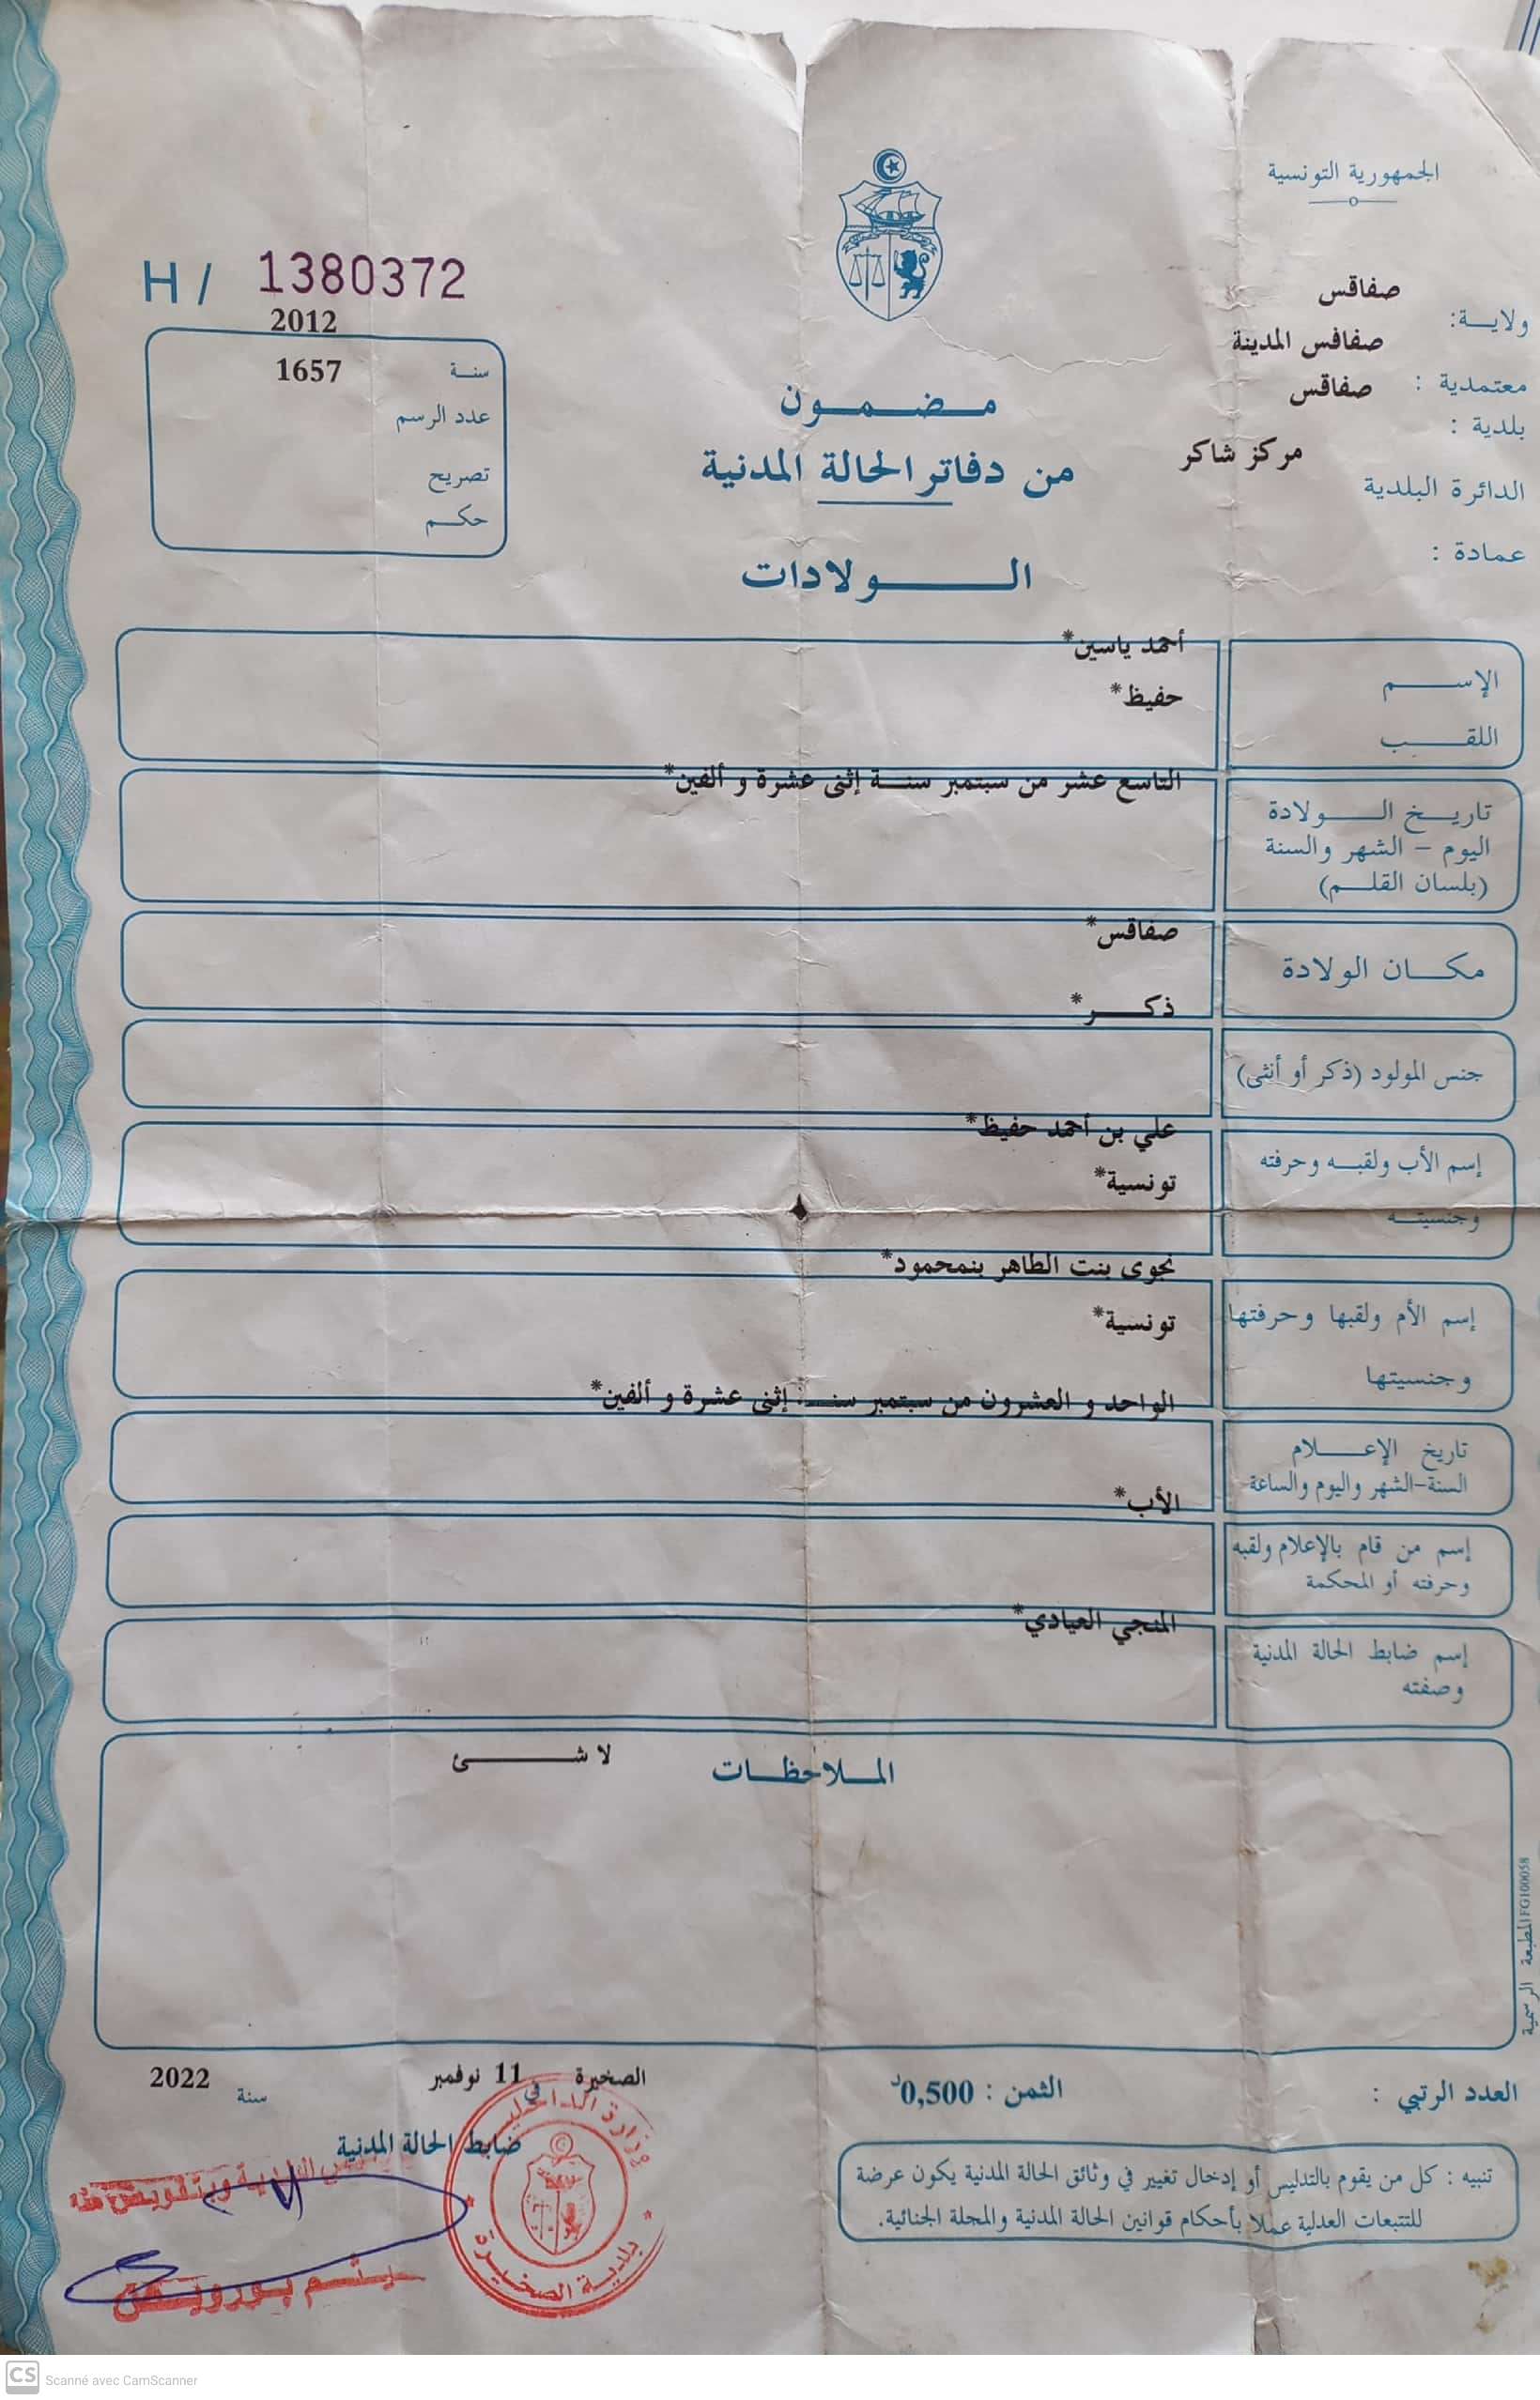 الجمهورية التونسية
ولاية: صفاقس
معتمدية : صفاقس المدينة
بلدية : صفاقس
الدائرة البلدية مركز شاكر
عمادة :
H / 1380372
سنة 2012
عدد الرسم 1657
تصريح
حكم
مضمون
من دفاتر الحالة المدنية
الولادات
الإسم أحمد ياسين*
اللقب حفيظ*
تاريخ الولادة
اليوم - الشهر والسنة
(بلسان القلم)
التاسع عشر من سبتمبر سنة إثنى عشرة و ألفين*
مكان الولادة صفاقس*
جنس المولود (ذكر أو أنثى) ذكر*
إسم الأب ولقبه وحرفته علي بن أحمد حفيظ*
وجنسيته تونسية*
إسم الأم ولقبها وحرفتها نجوى بنت الطاهر بنمحمود*
وجنسيتها تونسية*
تاريخ الإعلام
السنة-الشهر واليوم والساعة
الواحد و العشرون من سبتمبر سنة إثنى عشرة و ألفين*
إسم من قام بالإعلام ولقبه
وحرفته أو المحكمة
الأب*
إسم ضابط الحالة المدنية
وصفته
المنجي العيادي*
الملاحظات لا شئ
المطبعة الرسمية FG100058
العدد الرتبي :
الثمن : 0,500د
الصخيرة في 11 نوفمبر سنة 2022
ضابط الحالة المدنية
تنبيه : كل من يقوم بالتدليس أو إدخال تغيير في وثائق الحالة المدنية يكون عرضة
للتتبعات العدلية عملا بأحكام قوانين الحالة المدنية والمجلة الجنائية.
وزارة الداخلية
بلدية الصخيرة
وبتفويض منه
CS Scanné avec CamScanner